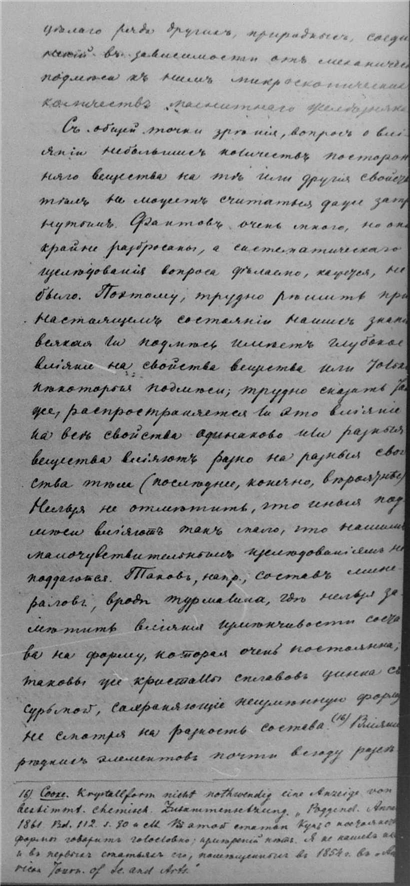 цѣлаго ряда другихъ, природныхъ, соеди
неній въ зависимости отъ механическ
подмѣса къ нимъ микроскопическихъ
количествъ магнитнаго желѣзняка
Съ общей точки зрѣнія, вопросъ о влі
яніи небольшихъ количествъ посторон
няго вещества на тѣ или другія свойст
тѣлъ не можетъ считаться даже затр
нутымъ. Фактовъ очень много, но они
крайне разбросаны, а систематическаго
изслѣдованія вопроса сдѣлано, кажется, не
было. Поэтому, трудно рѣшить при
настоящемъ состояніи нашихъ знаній
всякая ли подмѣсь имѣетъ глубокое
вліяніе на свойства вещества или только
нѣкоторыя подмѣси; трудно сказать да
же, распространяется ли это вліяніе
на всѣ свойства одинаково или разныя
вещества вліяютъ разно на разныя свой
ства тѣла (послѣднее, конечно, вѣроятнѣе)
Нельзя не отмѣтить, что иныя под
мѣси вліяютъ такъ мало, что нашимъ
малочувствительнымъ изслѣдованіямъ не
поддаются. Таковъ, напр., составъ мине
раловъ, вродѣ турмалина, гдѣ нельзя за
мѣтить вліянія измѣнчивости соста
ва на форму, которая очень постоянна;
таковы же кристаллы сплавовъ цинка съ
сурьмой, сохраняющіе неизмѣнную форму
не смотря на разность состава. (16) Вліяніе
рѣдкихъ элементовъ почти всюду
16) Cooke. Krystallform nicht nothwendig eine Anzeige von
bestimmt. chemisch. Zusammensetzung. „Poggend. Ann.
1861. Bd. 112. s. 90
формы говоритъ голословно; измѣреній нѣтъ. Я не нашелъ ихъ
и въ первыхъ статьяхъ его, помѣщенныхъ въ 1854 г. въ „Ame
rican Journ. of Sc. and Arts.“